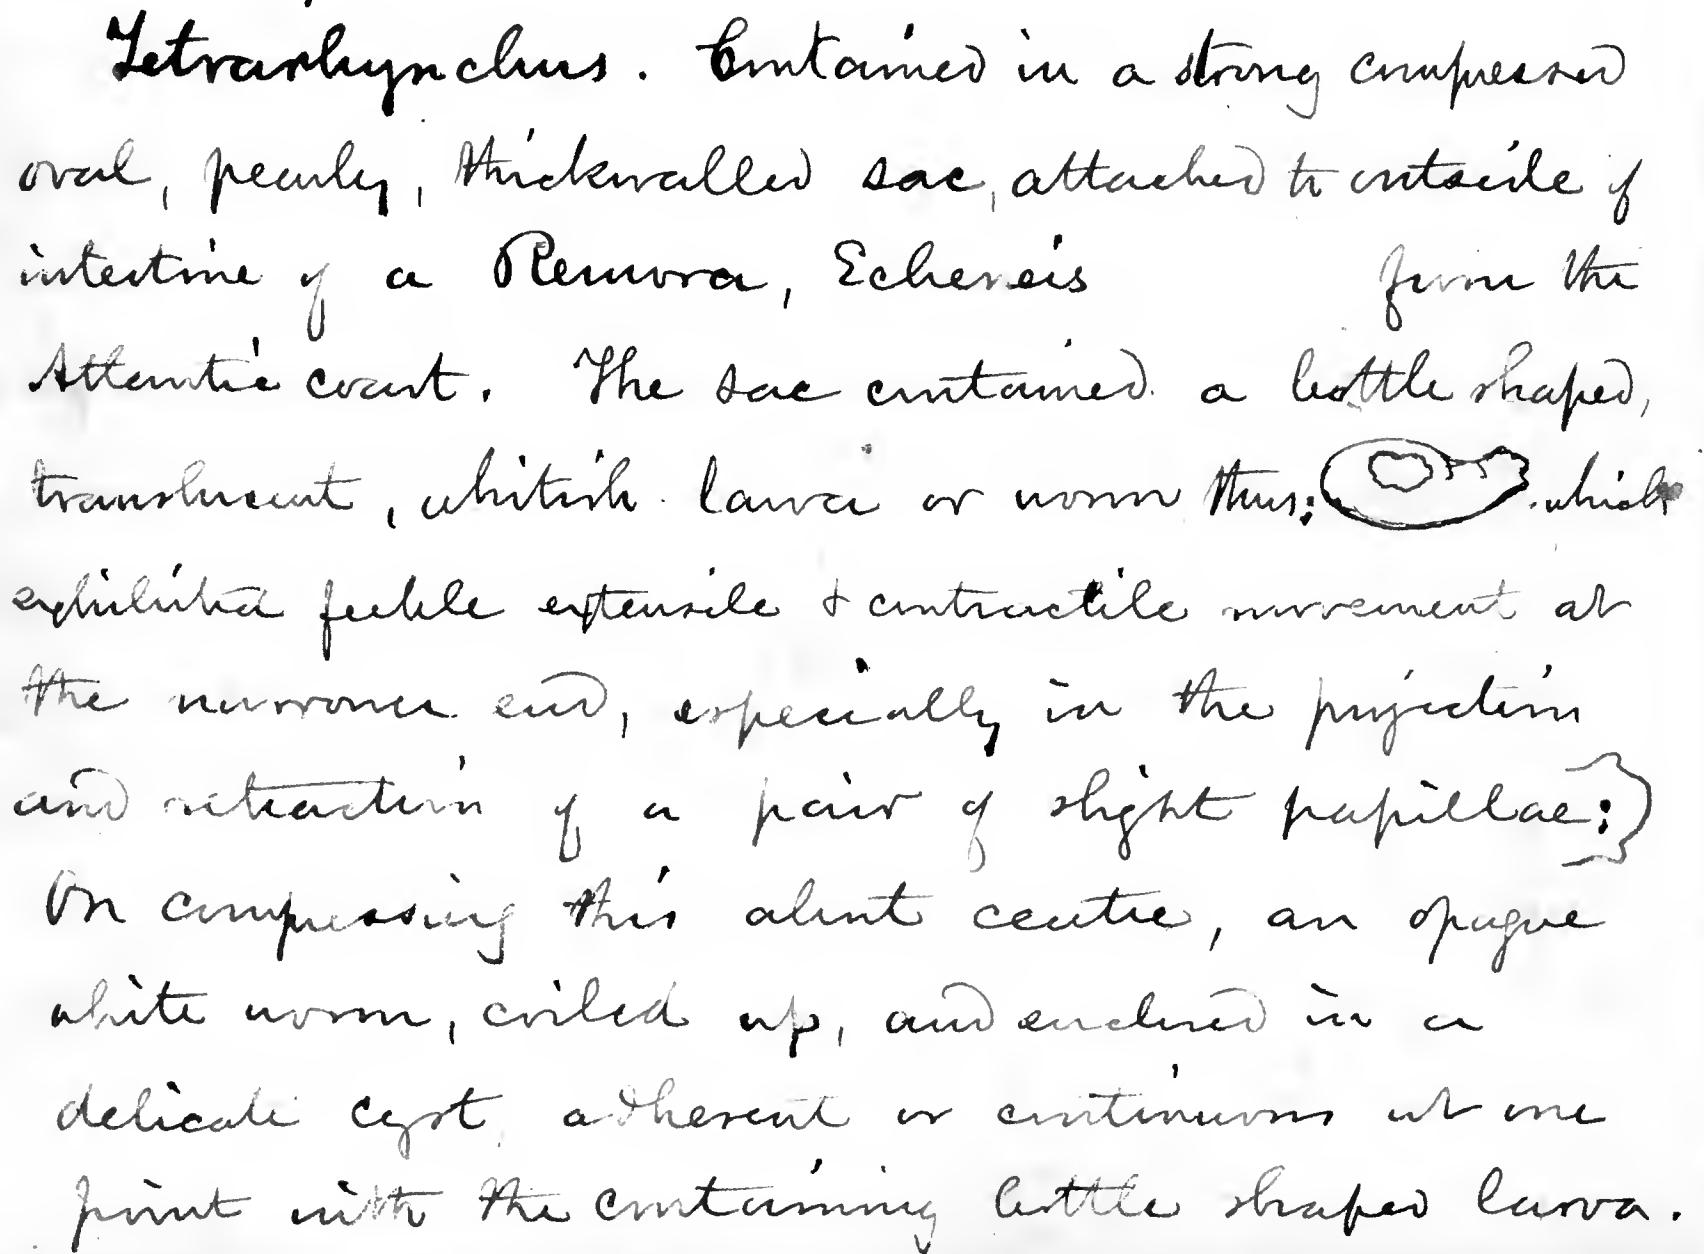 Tetrarhynchus. Contained in a strong compressed
oval, pearly, thickwalled sac, attached to outside of
intestine of a Remora, Echeneis from the
Atlantic coast. The sac contained a bottle shaped,
translucent, whitish larva or worm thus: which
exhibited feeble extensile & contractile movement at
the narrower end, especially in the projection
and retraction of a pair of slight papillae:
On compressing this about centre, an opaque
white worm, coiled up, and enclosed in a
delicate cyst adherent or continuous at one
point with the containing bottle shaped larva.